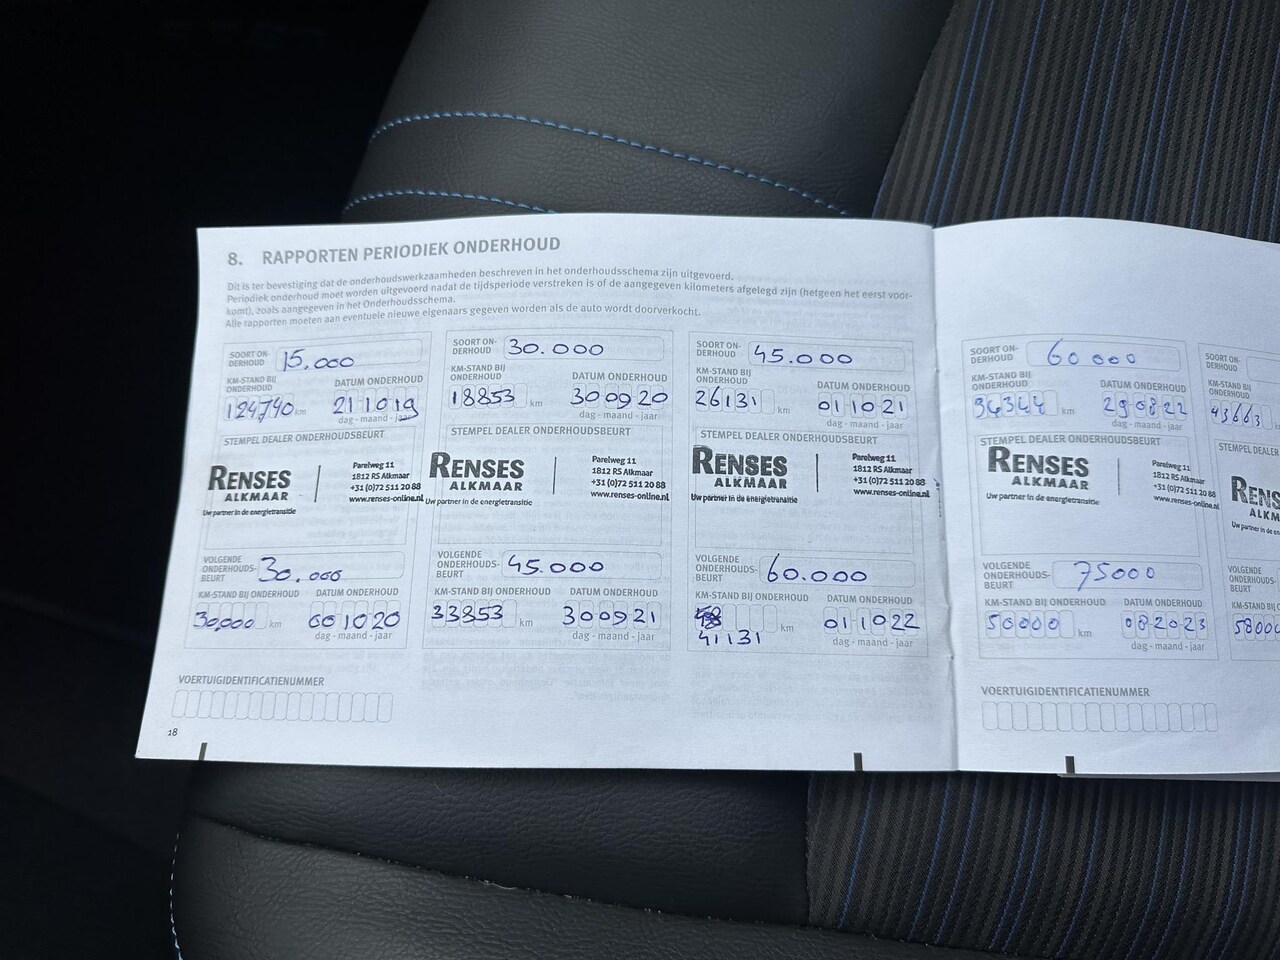 8. RAPPORTEN PERIODIEK ONDERHOUD
Dit is ter bevestiging dat de onderhoudswerkzaamheden beschreven in het onderhoudsschema zijn uitgevoerd.
Periodiek onderhoud moet worden uitgevoerd nadat de tijdsperiode verstreken is of de aangegeven kilometers afgelegd zijn (hetgeen het eerst voor-
komt), zoals aangegeven in het Onderhoudsschema.
Alle rapporten moeten aan eventuele nieuwe eigenaars gegeven worden als de auto wordt doorverkocht.
SOORT ON-
DERHOUD 15.000
KM-STAND BIJ
ONDERHOUD
DATUM ONDERHOUD
km 21 10 19
dag - maand - jaar
STEMPEL DEALER ONDERHOUDSBEURT
RENSES
ALKMAAR
Uw partner in de energietransitie
Parelweg 11
1812 RS Alkmaar
+31 (0)72 511 20 88
www.renses-online.nl
VOLGENDE
ONDERHOUDS-
BEURT 30.000
KM-STAND BIJ ONDERHOUD
DATUM ONDERHOUD
30,000 km 001020
dag - maand - jaar
SOORT ON-
DERHOUD 30.000
KM-STAND BIJ
ONDERHOUD
DATUM ONDERHOUD
18853 km 300920
dag - maand - jaar
STEMPEL DEALER ONDERHOUDSBEURT
RENSES
ALKMAAR
Uw partner in de energietransitie
Parelweg 11
1812 RS Alkmaar
+31 (0)72 511 20 88
www.renses-online.nl
VOLGENDE
ONDERHOUDS-
BEURT 45.000
KM-STAND BIJ ONDERHOUD
DATUM ONDERHOUD
33853 km 300921
dag - maand - jaar
SOORT ON-
DERHOUD 45.000
KM-STAND BIJ
ONDERHOUD
DATUM ONDERHOUD
26131 km 011021
dag - maand - jaar
STEMPEL DEALER ONDERHOUDSBEURT
RENSES
ALKMAAR
Uw partner in de energietransitie
Parelweg 11
1812 RS Alkmaar
+31 (0)72 511 20 88
www.renses-online.nl
VOLGENDE
ONDERHOUDS-
BEURT 60.000
KM-STAND BIJ ONDERHOUD
DATUM ONDERHOUD
41131 km 011022
dag - maand - jaar
VOERTUIGIDENTIFICATIENUMMER
18
SOORT ON-
DERHOUD 60000
KM-STAND BIJ
ONDERHOUD
DATUM ONDERHOUD
km 290822
dag - maand - jaar
STEMPEL DEALER ONDERHOUDSBEURT
RENSES
ALKMAAR
Uw partner in de energietransitie
Parelweg 11
1812 RS Alkmaar
+31 (0)72 511 20 88
www.renses-online.nl
VOLGENDE
ONDERHOUDS-
BEURT 75000
KM-STAND BIJ ONDERHOUD
DATUM ONDERHOUD
50000 km 082023
dag - maand - jaar
VOERTUIGIDENTIFICATIENUMMER
SOORT ON-
DERHOUD
KM-STAND BIJ
ONDERHOUD
43663
STEMPEL DEALER
RENS
ALKM
Uw partner in de en
VOLGENDE
ONDERHOUDS-
BEURT
KM-STAND BIJ
5800